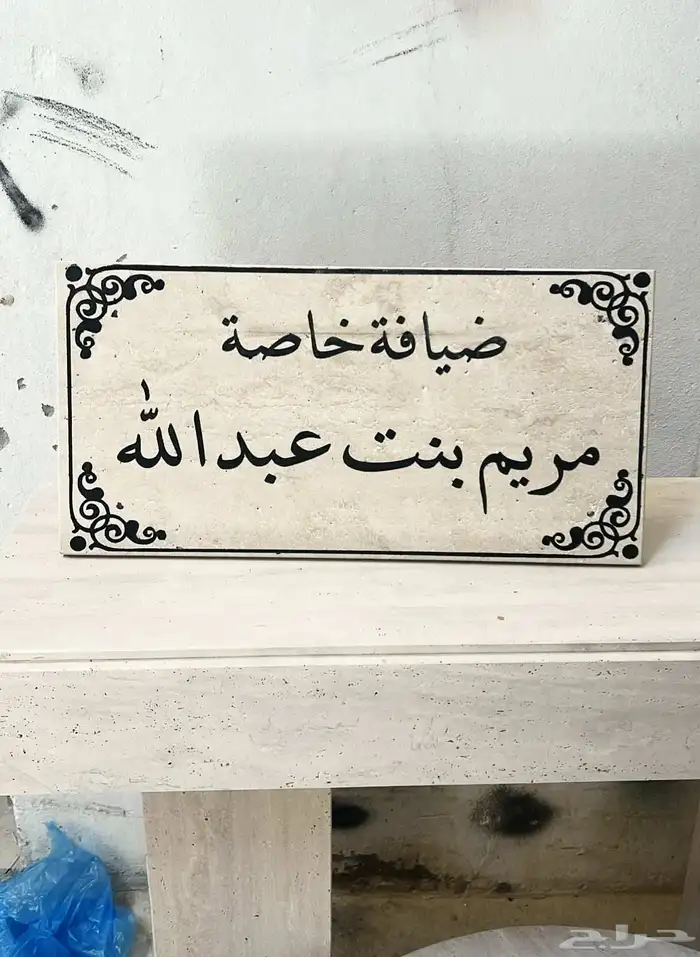 ضيافة خاصة
مريم بنت عبدالله
حراج